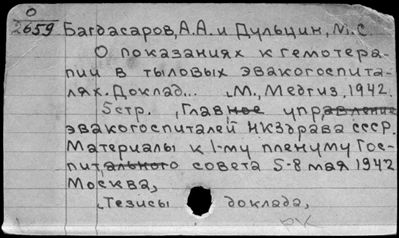 О
2659 Багдасаров, А.А. и Дульцин, М.С.
О показаниях к гемотера-
пии в тыловых эвакогоспита-
лях. Доклад... М., Медгиз, 1942.
5стр. , Главное управление
эвакогоспиталей НКЗдрава СССР.
Материалы к 1-му пленуму Гос-
питального совета 5-8 мая 1942
Москва,
, Тезисы доклада,